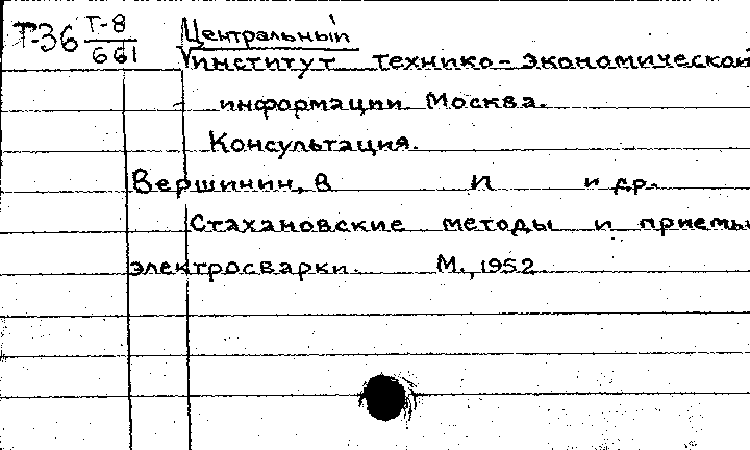 Т-36 Т-8 Центральный
661 институт технико-экономической
информации. Москва.
Консультация.
Вершинин, В П и др.
Стахановские методы и приемы
электросварки. М., 1952